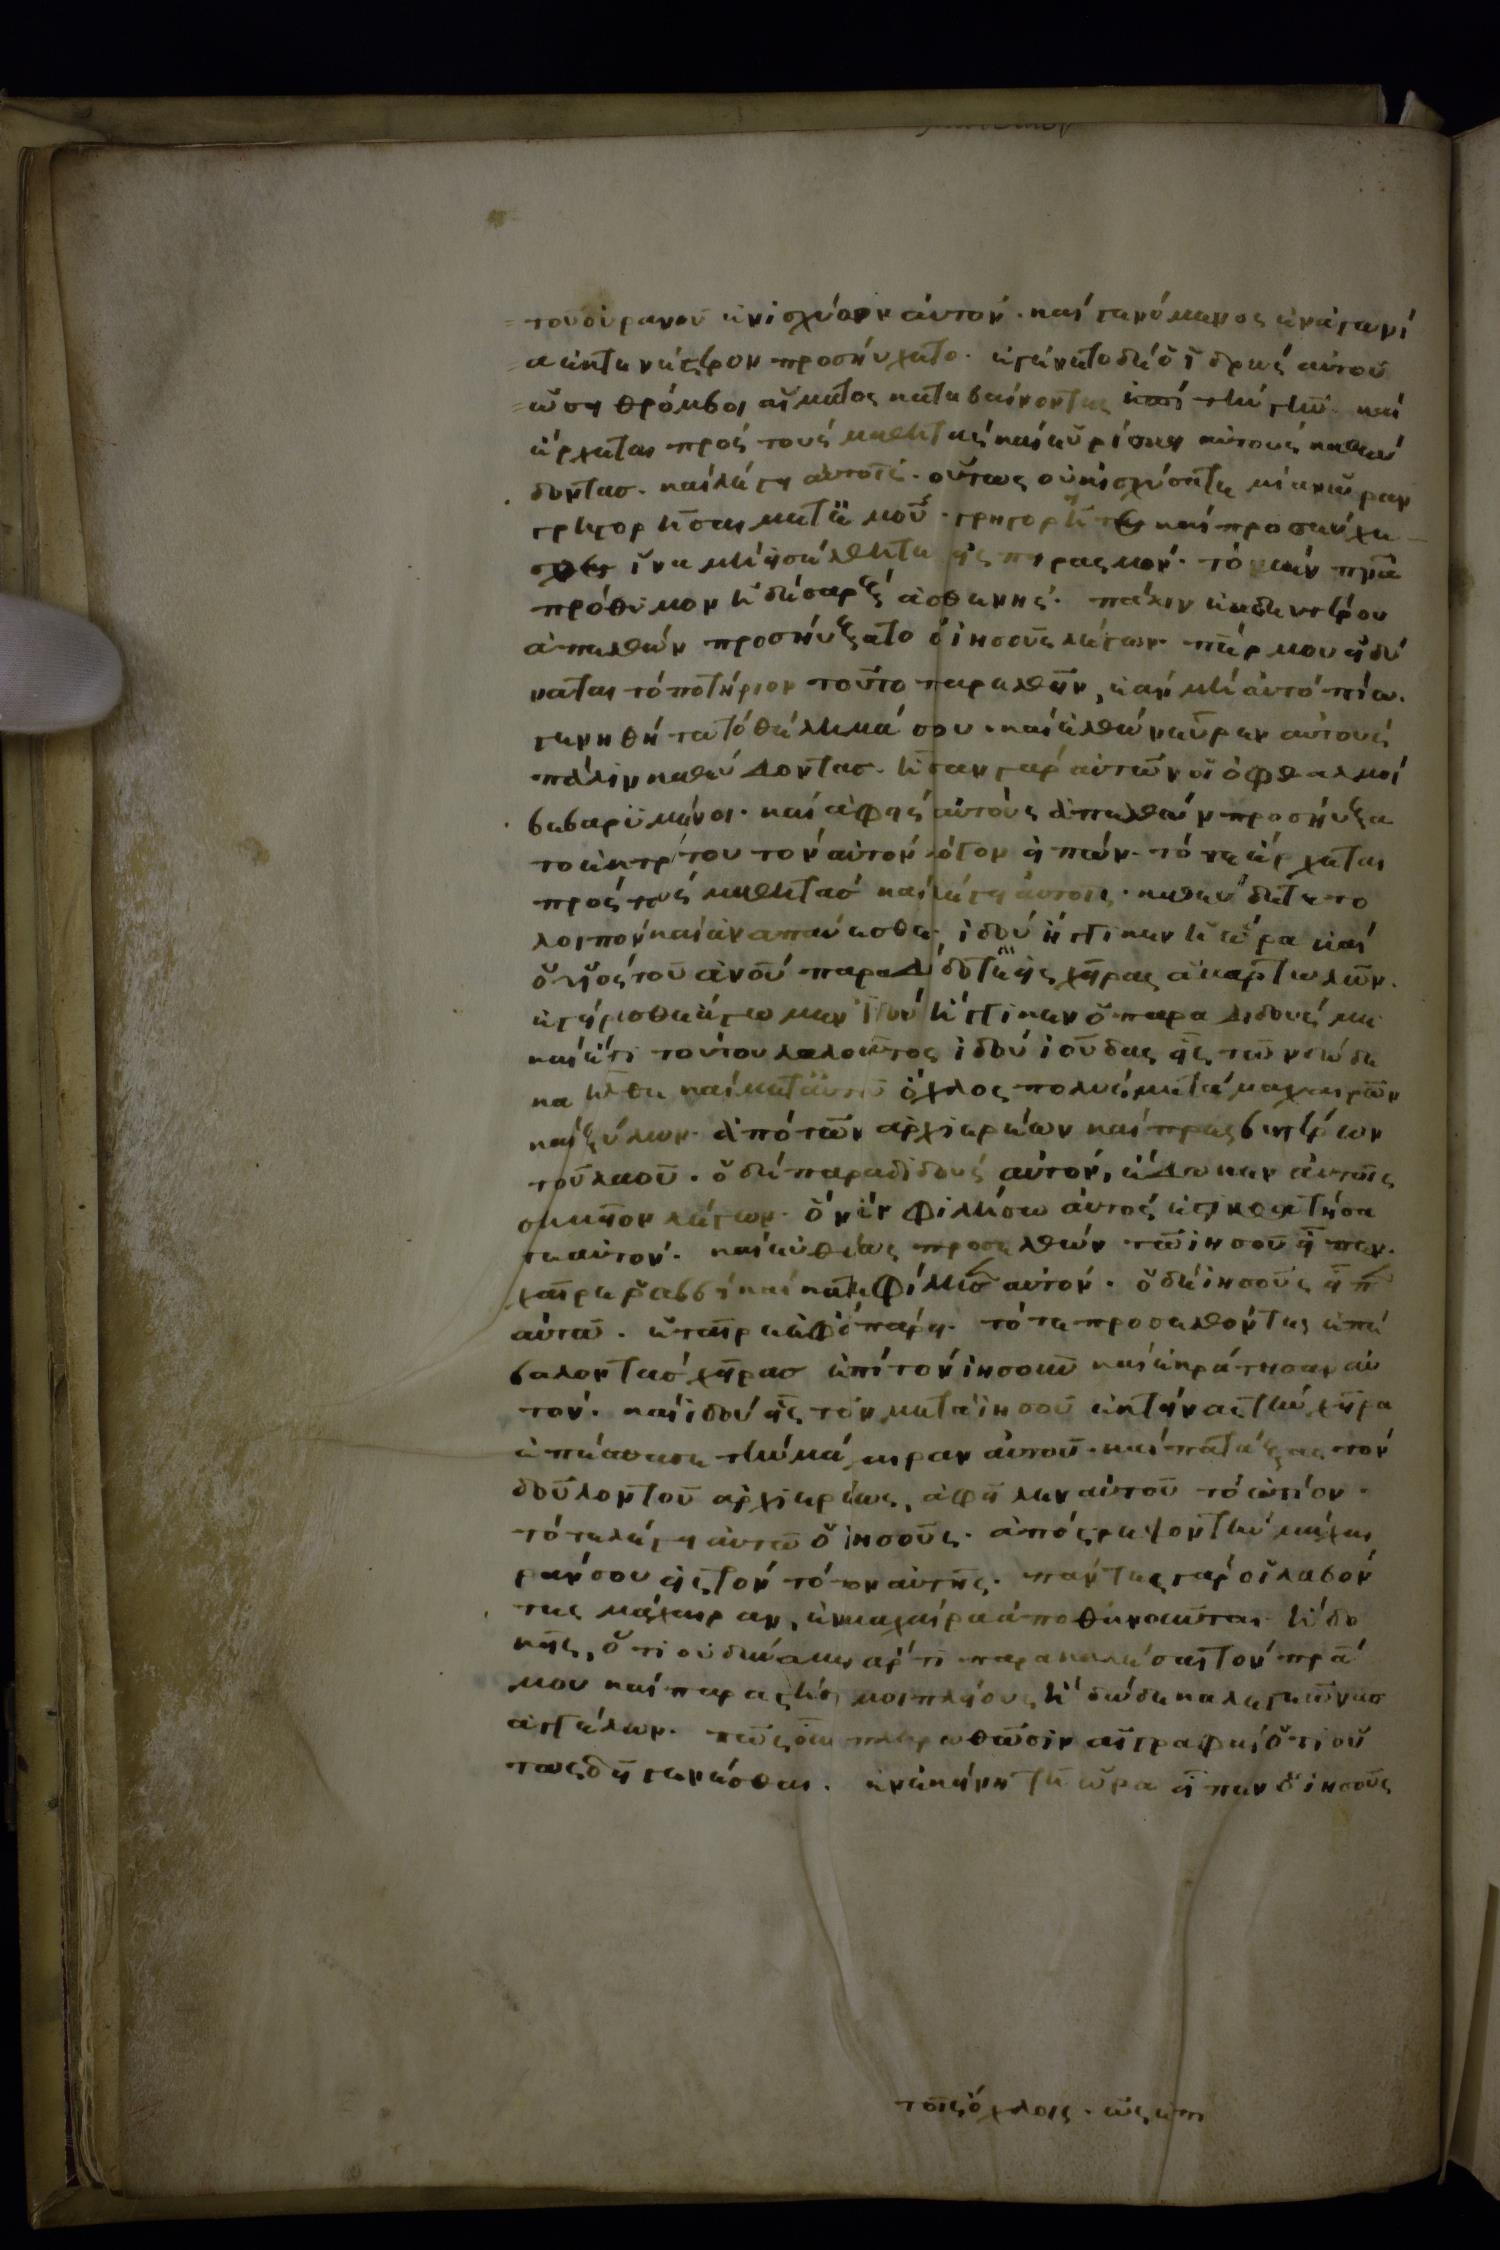 τοῦ οὐρανοῦ ἐνισχύων αὐτόν. καί γενόμενος ἐν ἀγωνί
α ἐκτενέστερον προσηύχετο. ἐγένετο δέ ὁ ἱδρώς αὐτοῦ
ὡσει θρόμβοι αἵματος καταβαίνοντες ἐπί τήν γῆν. καί
ἔρχεται πρός τούς μαθητάς καί εὑρίσκει αὐτούς καθεύ
δοντασ. καί λέγει αὐτοῖς. οὕτως οὐκ ἰσχύσατε μίαν ὥραν
γρηγορῆσαι μετ ἐμοῦ. γρηγορεῖτε καί προσεύχε
σθε ἵνα μή εἰσέλθητε εἰς πειρασμόν. τό μέν πνα
πρόθυμον ἡ δέ σάρξ ἀσθενής. πάλιν ἐκ δευτέρου
ἀπελθών προσηύξατο ὁ ἰησοῦς λέγων. περ μου εἰ δύ
ναται τό ποτήριον τοῦτο παρελθεῖν, ἐάν μή αὐτό πίω.
γενηθήτω τό θέλημά σου. καί ἐλθών εὗρεν αὐτούς
πάλιν καθεύδοντασ. ἦσαν γάρ αὐτῶν οἱ ὀφθαλμοί
βεβαρυμένοι. καί ἀφείς αὐτούς ἀπελθών προσηύξα
το ἐκ τρίτου τόν αὐτόν λόγον εἰπών. τότε ἔρχεται
πρός τούς μαθητάσ καί λέγει αὐτοῖς. καθεύδετε το
λοιπόν καί ἀναπαύεσθε, ἰδού ἤγγικεν ἡ ὥρα καί
ὁ υἱός τοῦ ἀνου παραδίδοται εἰς χεῖρας ἁμαρτωλῶν.
ἐγείρεσθε ἄγωμεν ἰδού ἤγγικεν ὁ παραδιδούς με
καί ἔτι τούτου λαλοῦντος ἰδού ἰούδας εἷς τῶν δώδε
κα ἦλθε καί μετ αὐτοῦ ὄχλος πολύς μετά μαχαιρῶν
καί ξύλων. ἀπό τῶν ἀρχιερέων καί πρεσβυτέρων
τοῦ λαοῦ. ὁ δέ παραδιδούς αὐτόν, ἔδωκεν αὐτοῖς
σημεῖον λέγων. ὅν ἄν φιλήσω αὐτός ἐστι κρατήσα
τε αὐτόν. καί εὐθέως προσελθών τῶ ἰησοῦ εἶπεν.
χαῖρε ραββί καί κατεφίλησ αὐτόν. ὁ δέ ἰησοῦς εἶπ
αὐτῶ. ἑταῖρε ἐφ ὅ πάρει. τότε προσελθόντες ἐπέ
βαλον τάσ χεῖρασ ἐπί τόν ἰησοῦν καί ἐκράτησαν αὐ
τόν. καί ἰδού εἷς τῶν μετά ἰησοῦ ἐκτείνας τήν χεῖρα
ἀπέσπασε τήν μάχαιραν αὐτοῦ. καί πατάξας τόν
δοῦλον τοῦ ἀρχιερέως, ἀφεῖλεν αὐτοῦ τό ὠτίον.
τότε λέγει αὐτῶ ὁ ἰησοῦς. ἀπόστρεψον τήν μάχαι
ράν σου εἰς τόν τόπον αὐτῆς. πάντες γάρ οἱ λαβόν
τες μάχαιραν, ἐν μαχαίρα ἀποθανοῦνται. ἤ δο
κεῖς, ὅτι οὐ δύναμαι ἄρτι παρακαλέσαι τόν πρα
μου καί παραστήσει μοι πλείους ἤ δώδεκα λεγεῶνασ
ἀγγέλων. πῶς οὖν πληρωθῶσιν αἱ γραφαί ὅτι οὕ
τως δεῖ γενέσθαι. ἐν ἐκείνη τῆ ὥρα εἶπεν ὁ ἰησοῦς
τοῖς ὄχλοις. ὡς ἐπι